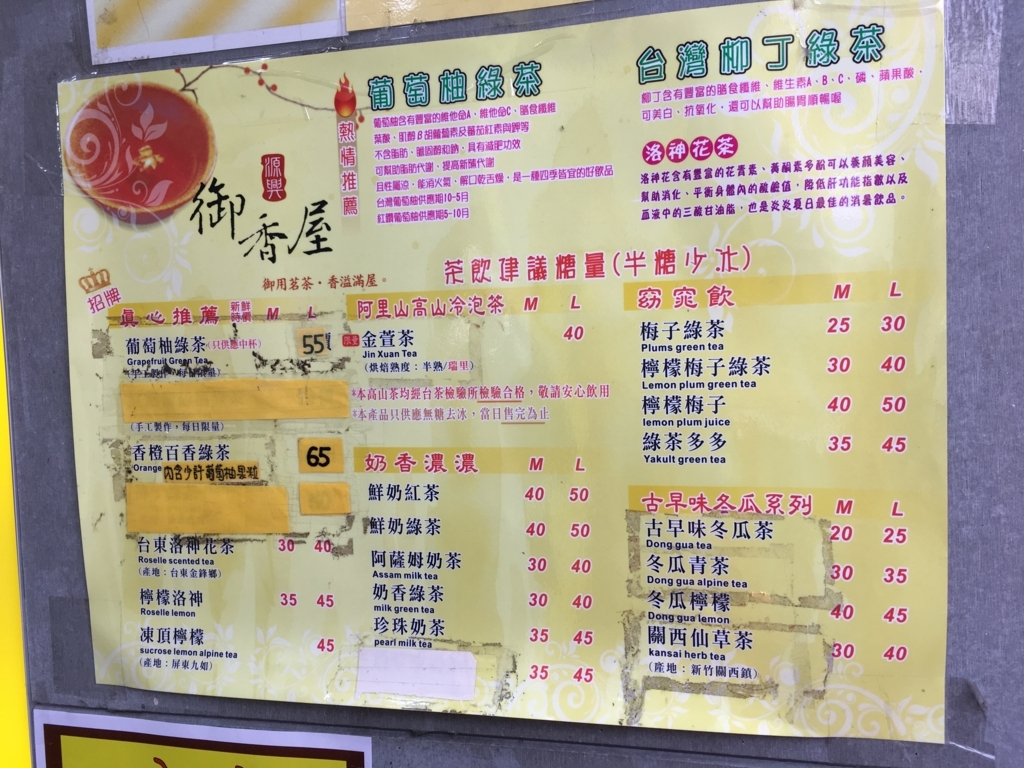 葡萄柚綠茶
葡萄柚含有豐富的維他命A、維他命C、膳食纖維
葉酸、肌醇B胡蘿蔔素及蕃茄紅素與鉀等
不含脂肪、膽固醇和鈉,具有減肥功效
可幫助脂肪代謝、提高新陳代謝
且性屬涼,能消火氣、解口乾舌燥,是一種四季皆宜的好飲品
台灣葡萄柚供應期10-5月
紅鑽葡萄柚供應期5-10月
熱情推薦
台灣柳丁綠茶
柳丁含有豐富的膳食纖維、維生素A、B、C、磷、蘋果酸,
可美白、抗氧化,還可以幫助腸胃順暢喔
洛神花茶
洛神花含有豐富的花青素、黃酮素多酚可以養顏美容、
幫助消化,平衡身體內的酸鹼值,降低肝功能指數以及
血液中的三酸甘油脂,也是炎炎夏日最佳的消暑飲品。
源興
御香屋
御用茗茶・香溢滿屋。
茶飲建議糖量(半糖少冰)
招牌
真心推薦 新鮮時價 M L
葡萄柚綠茶(只供應中杯) 55
Grapefruit Green Tea
(手工製作,每日限量)
香橙百香綠茶 65
Orange 內含少許葡萄柚果粒
台東洛神花茶 30 40
Roselle scented tea
(產地:台東金鋒鄉)
檸檬洛神 35 45
Roselle lemon
凍頂檸檬 45
sucrose lemon alpine tea
(產地:屏東九如)
阿里山高山冷泡茶 M L
限量 金萱茶 40
Jin Xuan Tea
(烘焙熟度:半熟/瑞里)
*本高山茶均經台茶檢驗所檢驗合格,敬請安心飲用
*本產品只供應無糖去冰,當日售完為止
奶香濃濃 M L
鮮奶紅茶 40 50
鮮奶綠茶 40 50
阿薩姆奶茶 30 40
Assam milk tea
奶香綠茶 30 40
milk green tea
珍珠奶茶 35 45
pearl milk tea
35 45
窈窕飲 M L
梅子綠茶 25 30
Plums green tea
檸檬梅子綠茶 30 40
Lemon plum green tea
檸檬梅子 40 50
lemon plum juice
綠茶多多 35 45
Yakult green tea
古早味冬瓜系列 M L
古早味冬瓜茶 20 25
Dong gua tea
冬瓜青茶 30 35
Dong gua alpine tea
冬瓜檸檬 40 45
Dong gua lemon
關西仙草茶 30 40
kansai herb tea
(產地:新竹關西鎮)